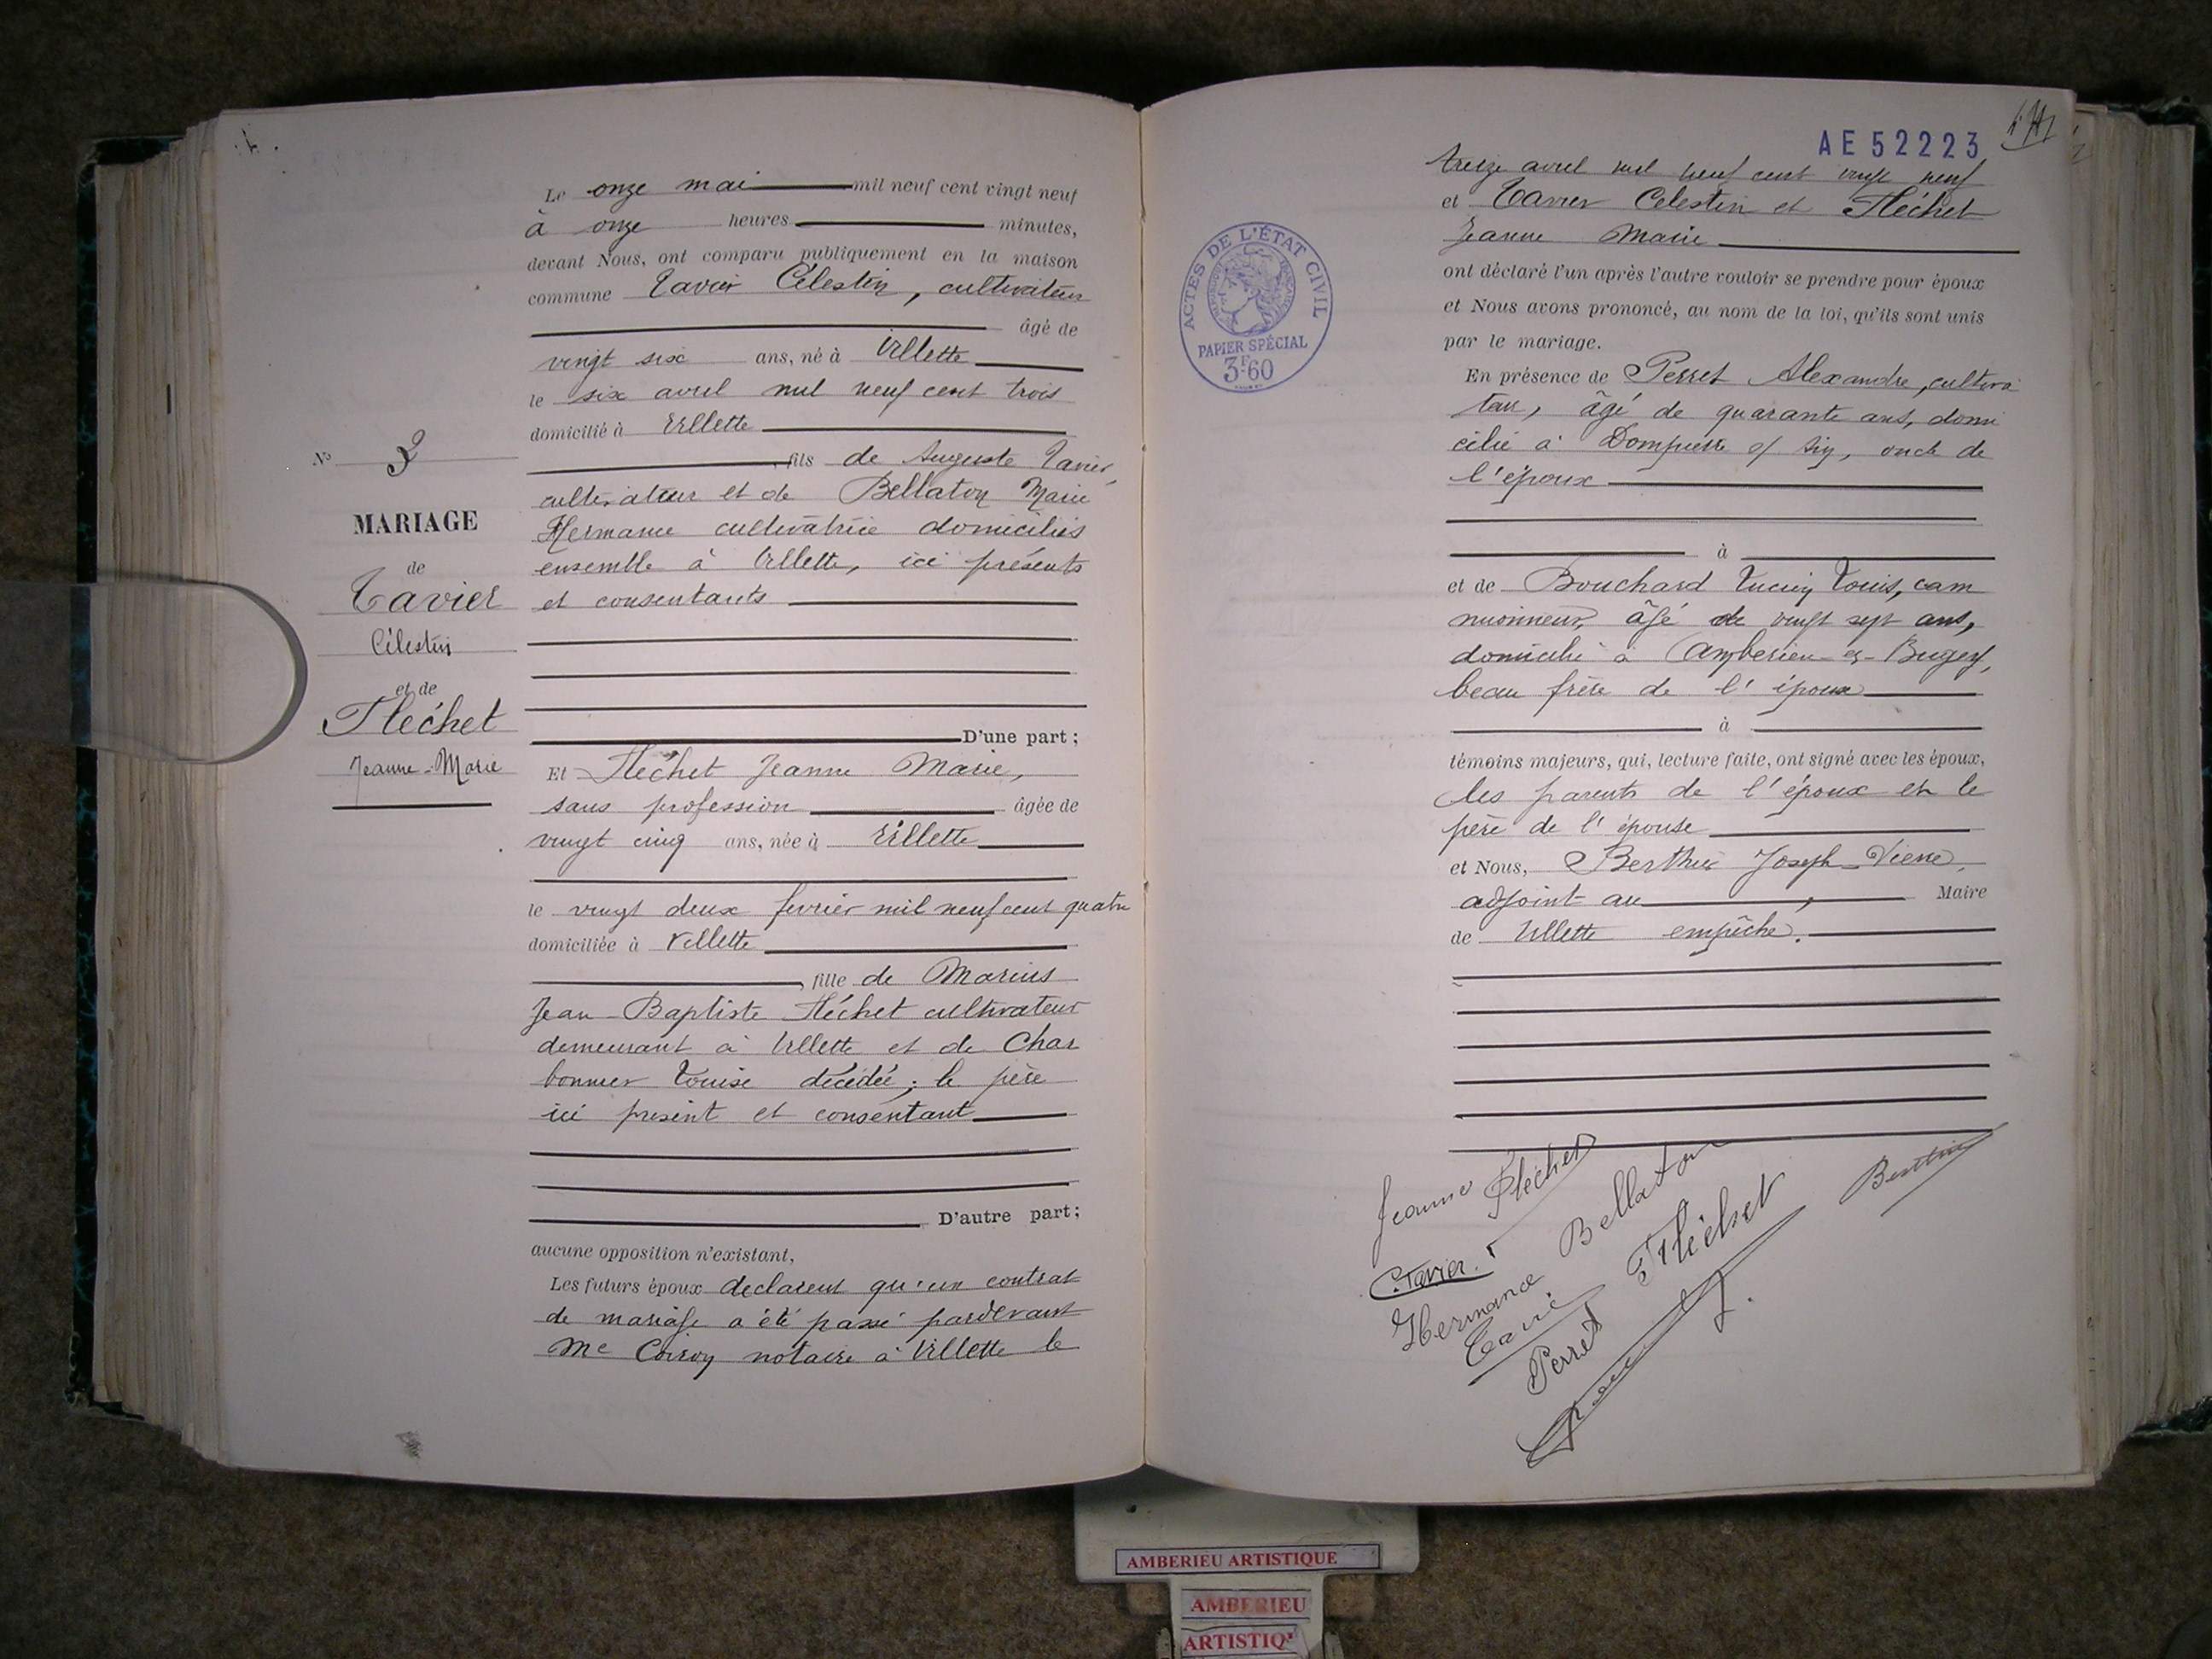 Le onze mai mil neuf cent vingt neuf
à onze heures minutes,
devant Nous, ont comparu publiquement en la maison
commune Tavier Célestin, cultivateur
âgé de
vingt six ans, né à Villette
le six avril mil neuf cent trois
domicilié à Villette
fils de Auguste Tavier,
cultivateur et de Bellaton Marie
Hermance cultivatrice domiciliés
ensemble à Villette, ici présents
et consentants
D'une part;
N° 3
MARIAGE
de
Tavier
Célestin
et de
Fléchet
Jeanne-Marie
Et Fléchet Jeanne Marie,
sans profession âgée de
vingt cinq ans, née à Villette
le vingt deux fevrier mil neuf cent quatre
domiciliée à Villette
, fille de Marius
Jean-Baptiste Fléchet cultivateur
demeurant à Villette et de Char
bonnier Louise décédée; le père
ici present et consentant
D'autre part;
aucune opposition n'existant,
Les futurs époux declarent qu'un contrat
de mariage a été passé pardevant
Me Coiron notaire à Villette le
AE52223
treize avril mil neuf cent vingt neuf
et Tavier Celestin et Fléchet
Jeanne Marie
ont déclaré l'un après l'autre vouloir se prendre pour époux
et Nous avons prononcé, au nom de la loi, qu'ils sont unis
par le mariage.
En présence de Perret Alexandre, cultiva
teur, âgé de quarante ans, domi
cilié à Dompierre s/ Ain, oncle de
l'époux
à
et de Bouchard Lucien Louis, cam
nionneur, âgé de vingt sept ans,
domicilié à Amberieu-en-Bugey,
beau frère de l'époux
à
témoins majeurs, qui, lecture faite, ont signé avec les époux,
les parents de l'époux et le
père de l'épouse
et Nous, Berthier Joseph-Pierre,
adjoint au Maire
de Villette empêché.
ACTES DE L'ÉTAT CIVIL
PAPIER SPÉCIAL
3F60
Jeanne Fléchet
C. Tavier.
Hermance Bellaton
Tavier
Fléchet
Perret
Berthier
AMBERIEU ARTISTIQUE
AMBERIEU
ARTISTIQ